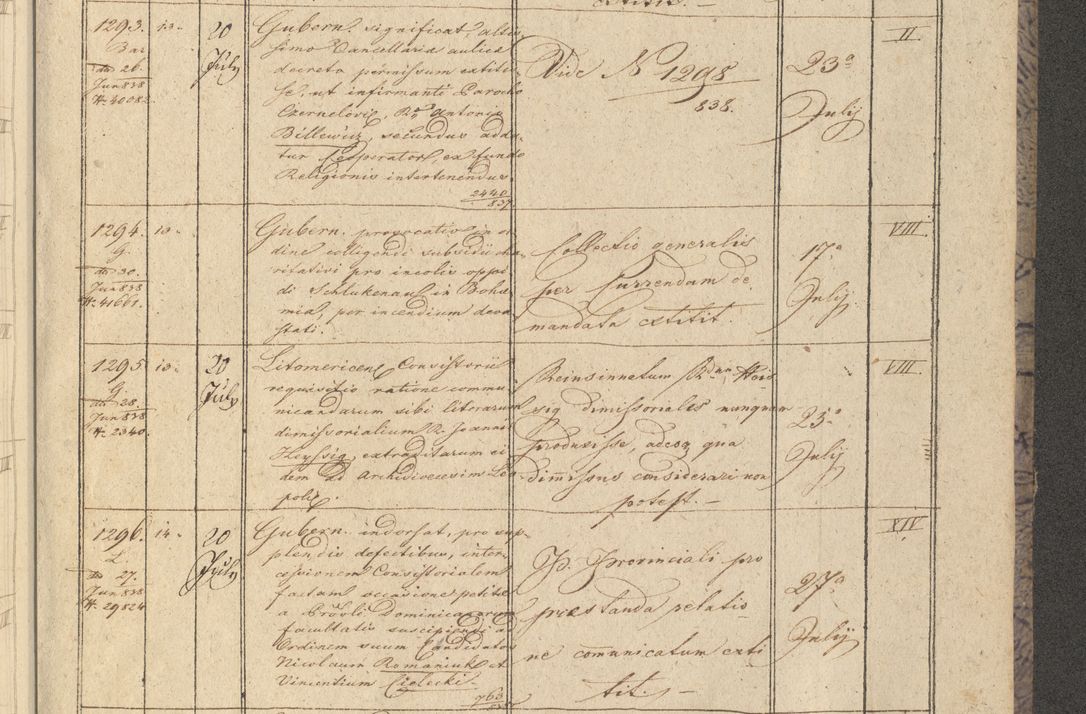 extitit. —
1293. 13. 20
Bar July
dto 26.
Jun 838
N. 40082
Gubern. significat, altis
simo Cancellaria aulica
decreto permissum extitis
se, ut infirmanti Parocho
Czernelow, Antonio
Billewicz, secundus adda-
tur Cooperator, ex fundo
Religionis intertenendus.
2440
837
Vide N 1298
838.
23a
July
II.
1294. 13.
G.
dto 30.
Jun 838
N. 41661.
Gubern. provocatio in or
dine colligendi subsidii cha-
ritativi pro incolis oppi-
di Schlukenau in Bohe-
mia, per incendium deva
stati.
Collectio generalis
per Currendam de-
mandata extitit.
17a
July
VIII.
1295. 13. 20
G. July
dto 28.
Jun 838
N. 2340.
Litomericen. Consistorii
requisitio ratione commu-
nicandarum sibi literarum
dimissorialium R. Joanni
Heyssig extraditarum ei
dem ad Archidiocesim Leo
polis.
Reinsinuatum Rdum Heis
sig dimissoriales nunquam
produxisse, adeoq qua
dimissus considerari non
potest. —
23a
July
VIII.
1296. 14. 20
L. July
dto 27.
Jun 838
N. 29824
Gubern. indorsat, pro sup-
plendis defectibus, inter-
cessionem Consistorialem
factam occasione petitae
a Dominicanorum
facultatis suscipiendi ad
Ordinem suum Candidatos
Nicolaum Romaniuk et
Vincentium Cielecki.
763
P. Provinciali pro
praestanda relatio
ne communicatum exti
tit. —
27a
July
XIV.